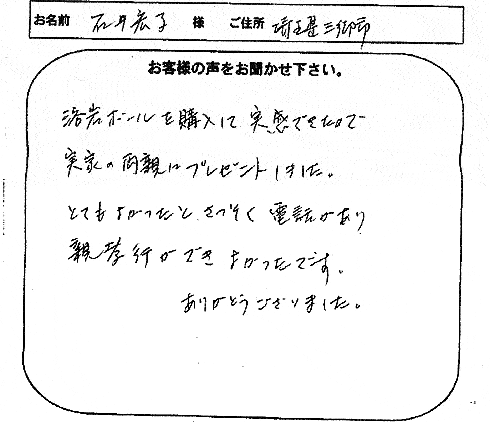 お名前 石井宏子 様 ご住所 埼玉県三郷市
お客様の声をお聞かせ下さい。
溶岩ボールを購入して実感できたので
実家の両親にプレゼントしました。
とてもよかったとさっそく電話があり
親孝行ができよかったです。
ありがとうございました。